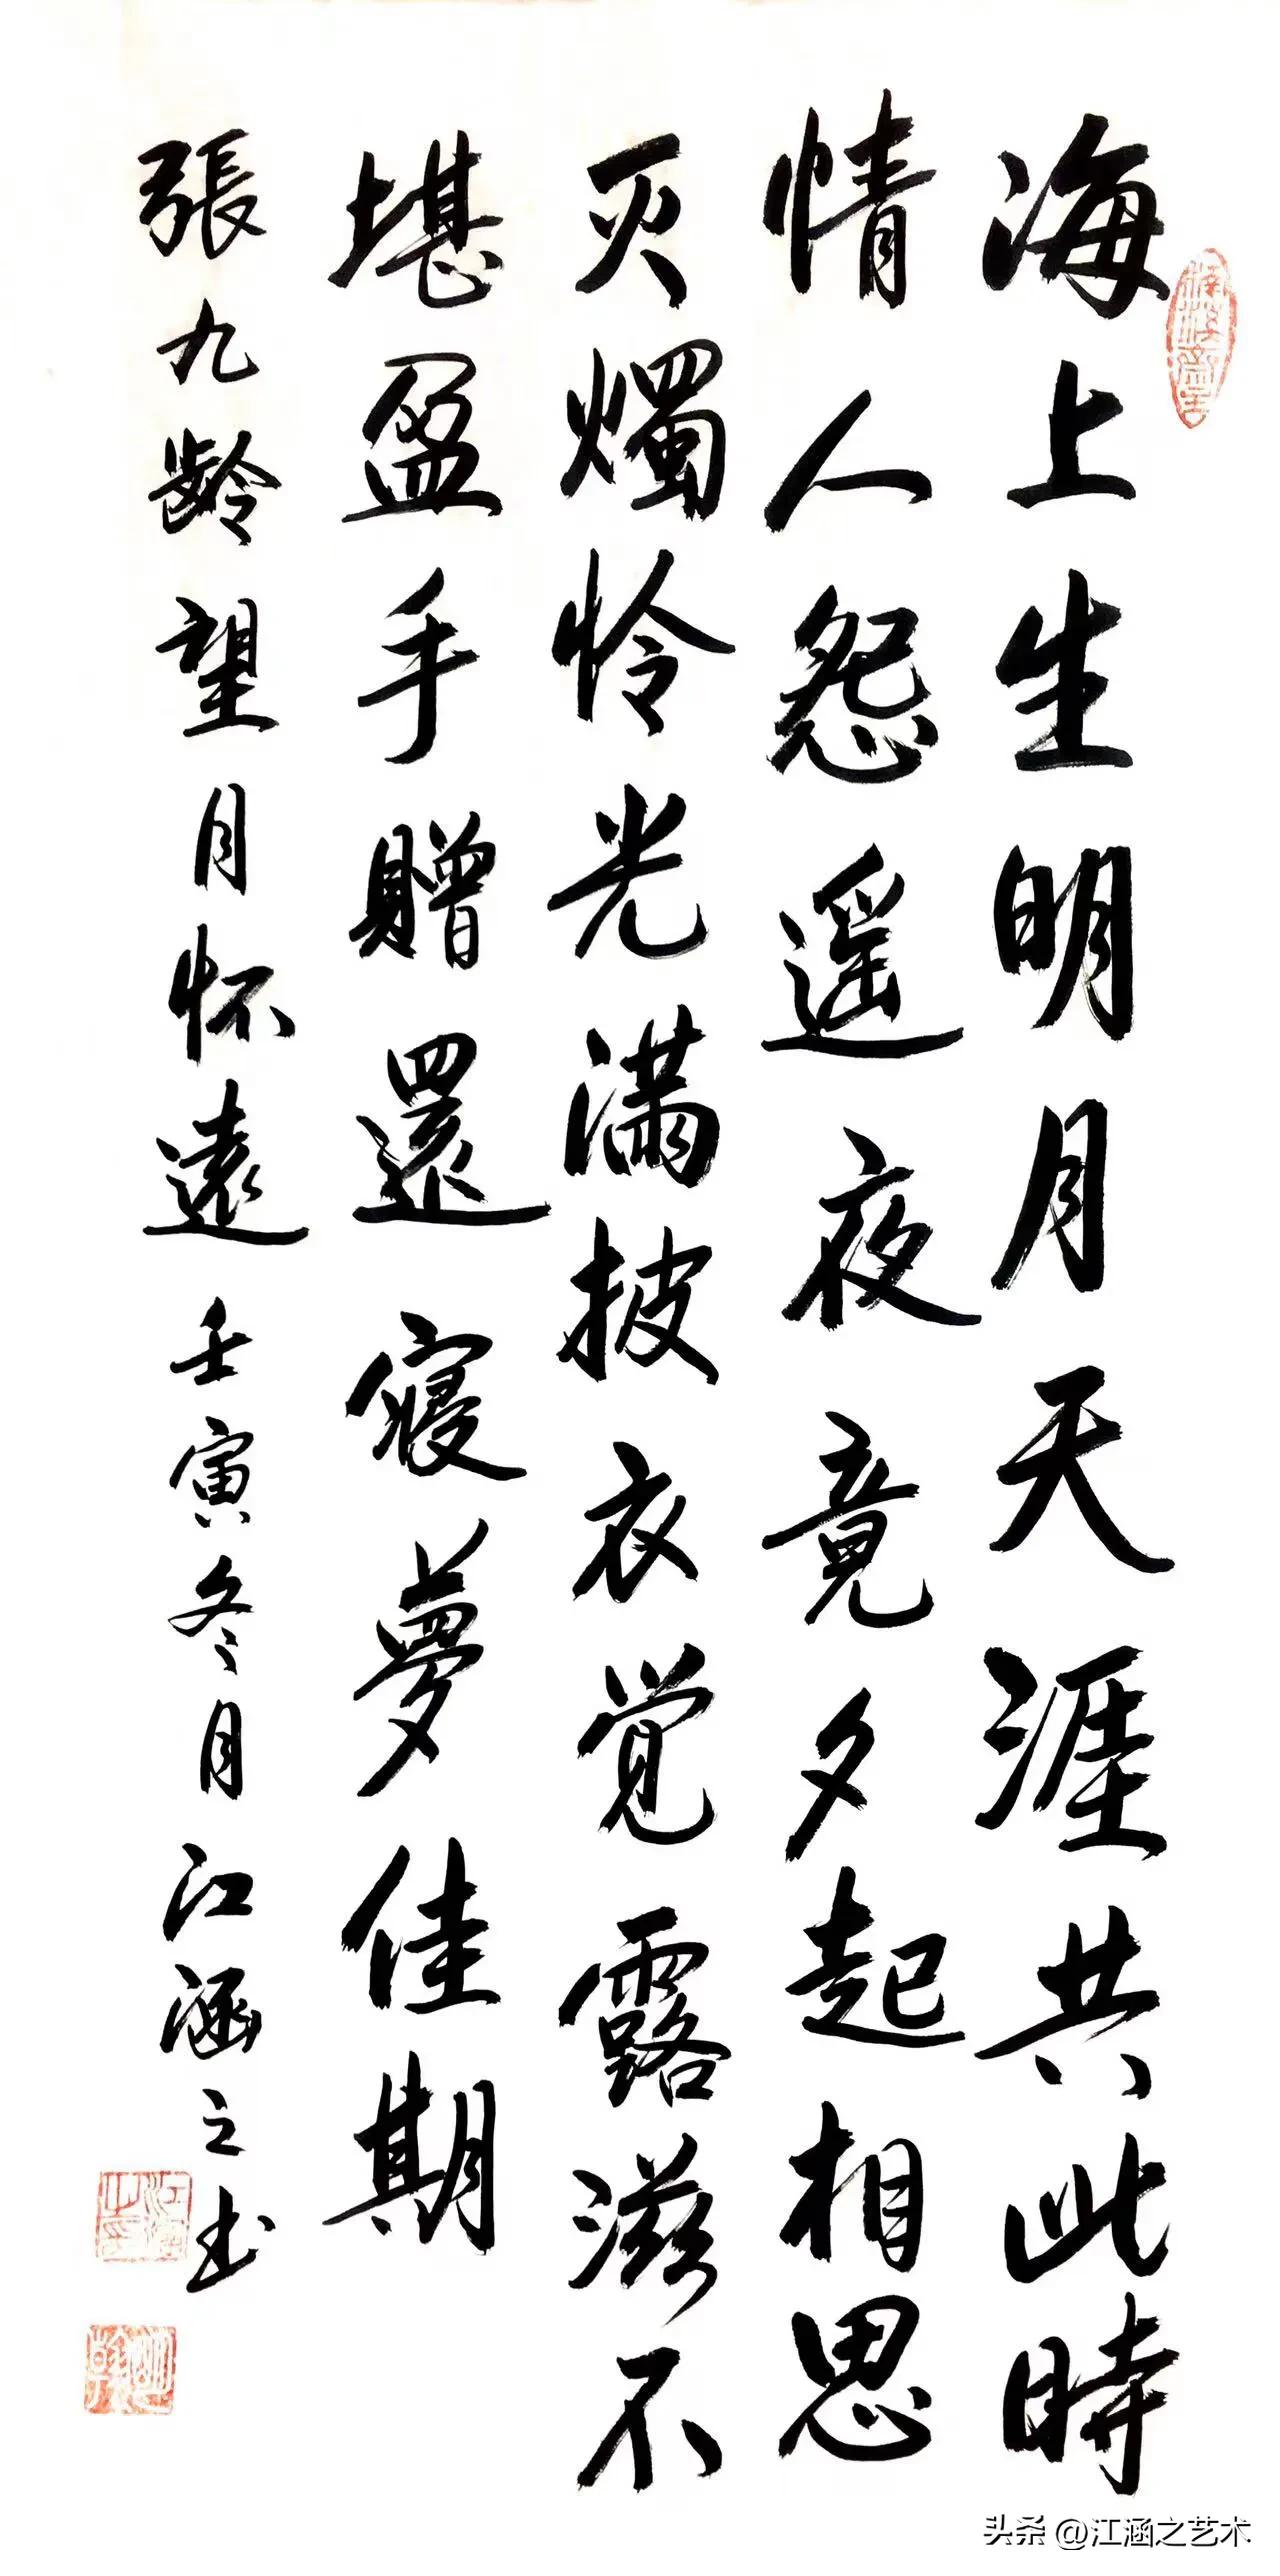 海上生明月天涯共此時
情人怨遥夜竟夕起相思
灭燭怜光满披衣觉露滋不
堪盈手贈還寝夢佳期
張九齡望月怀遠 壬寅冬月江涵之书
头条 @江涵之艺术